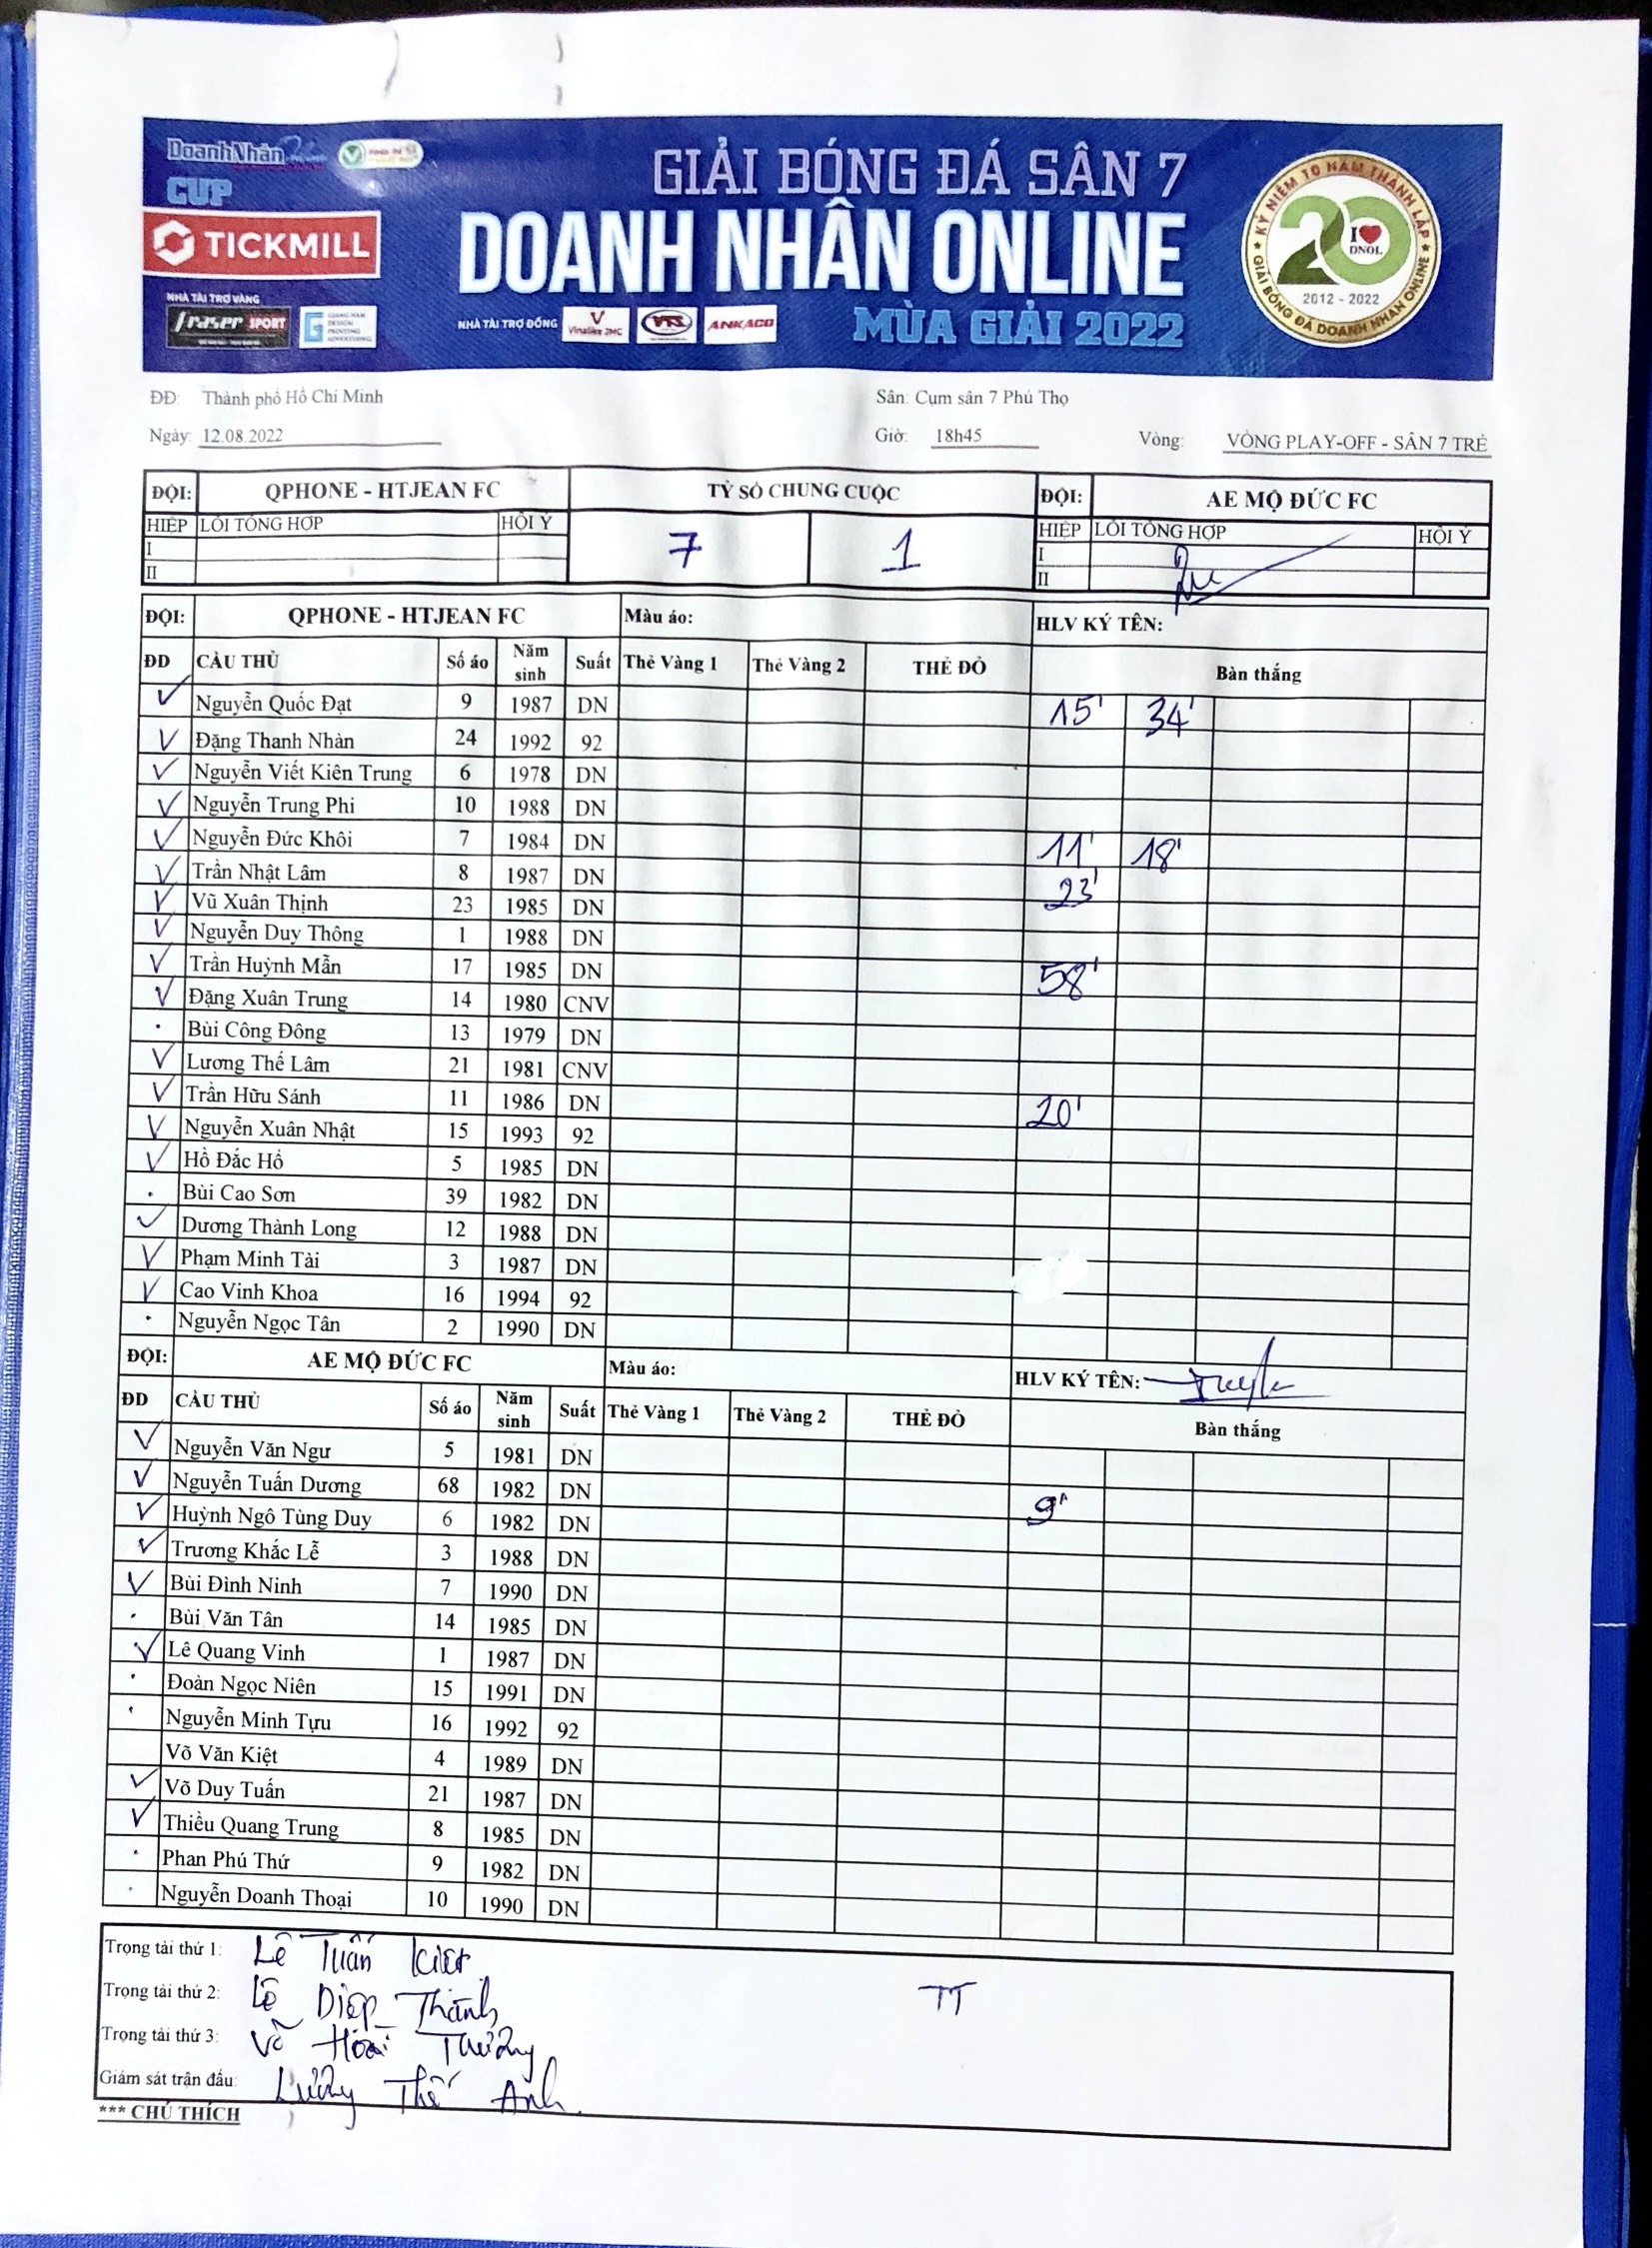 DoanhNhân
CUP
TICKMILL
NHÀ TÀI TRỢ VÀNG
SPORT
GIẢI BÓNG ĐÁ SÂN 7
DOANH NHÂN ONLINE
MÙA GIẢI 2022
NHÀ TÀI TRỢ ĐỒNG
Vinalike JMC
ANKACO
KỶ NIỆM 10 NĂM THÀNH LẬP
20
I DNOL
2012 - 2022
GIẢI BÓNG ĐÁ DOANH NHÂN ONLINE
ĐĐ: Thành phố Hồ Chí Minh Sân: Cụm sân 7 Phú Thọ
Ngày: 12.08.2022 Giờ: 18h45 Vòng: VÒNG PLAY-OFF - SÂN 7 TRẺ
ĐỘI: QPHONE - HTJEAN FC TỶ SỐ CHUNG CUỘC ĐỘI: AE MỘ ĐỨC FC
HIỆP LỖI TỔNG HỢP HỘI Ý 7 1 HIỆP LỖI TỔNG HỢP HỘI Ý
I I
II II
ĐỘI: QPHONE - HTJEAN FC Màu áo: HLV KÝ TÊN:
ĐD CẦU THỦ Số áo Năm sinh Suất Thẻ Vàng 1 Thẻ Vàng 2 THẺ ĐỎ Bàn thắng
Nguyễn Quốc Đạt 9 1987 DN 15' 34'
Đặng Thanh Nhàn 24 1992 92
Nguyễn Viết Kiên Trung 6 1978 DN
Nguyễn Trung Phi 10 1988 DN
Nguyễn Đức Khôi 7 1984 DN 11' 18'
Trần Nhật Lâm 8 1987 DN 23'
Vũ Xuân Thịnh 23 1985 DN
Nguyễn Duy Thông 1 1988 DN
Trần Huỳnh Mẫn 17 1985 DN 58'
Đặng Xuân Trung 14 1980 CNV
Bùi Công Đông 13 1979 DN
Lương Thế Lâm 21 1981 CNV
Trần Hữu Sánh 11 1986 DN 20'
Nguyễn Xuân Nhật 15 1993 92
Hồ Đắc Hổ 5 1985 DN
Bùi Cao Sơn 39 1982 DN
Dương Thành Long 12 1988 DN
Phạm Minh Tài 3 1987 DN
Cao Vinh Khoa 16 1994 92
Nguyễn Ngọc Tân 2 1990 DN
ĐỘI: AE MỘ ĐỨC FC Màu áo: HLV KÝ TÊN:
ĐD CẦU THỦ Số áo Năm sinh Suất Thẻ Vàng 1 Thẻ Vàng 2 THẺ ĐỎ Bàn thắng
Nguyễn Văn Ngư 5 1981 DN
Nguyễn Tuấn Dương 68 1982 DN 9'
Huỳnh Ngô Tùng Duy 6 1982 DN
Trương Khắc Lễ 3 1988 DN
Bùi Đình Ninh 7 1990 DN
Bùi Văn Tân 14 1985 DN
Lê Quang Vinh 1 1987 DN
Đoàn Ngọc Niên 15 1991 DN
Nguyễn Minh Tựu 16 1992 92
Võ Văn Kiệt 4 1989 DN
Võ Duy Tuấn 21 1987 DN
Thiều Quang Trung 8 1985 DN
Phan Phú Thứ 9 1982 DN
Nguyễn Doanh Thoại 10 1990 DN
Trọng tài thứ 1: Lê Tuấn Kiệt
Trọng tài thứ 2: Lê Diệp Thành TT
Trọng tài thứ 3: Võ Hoài Thương
Giám sát trận đấu: Lương Thế Anh.
*** CHÚ THÍCH